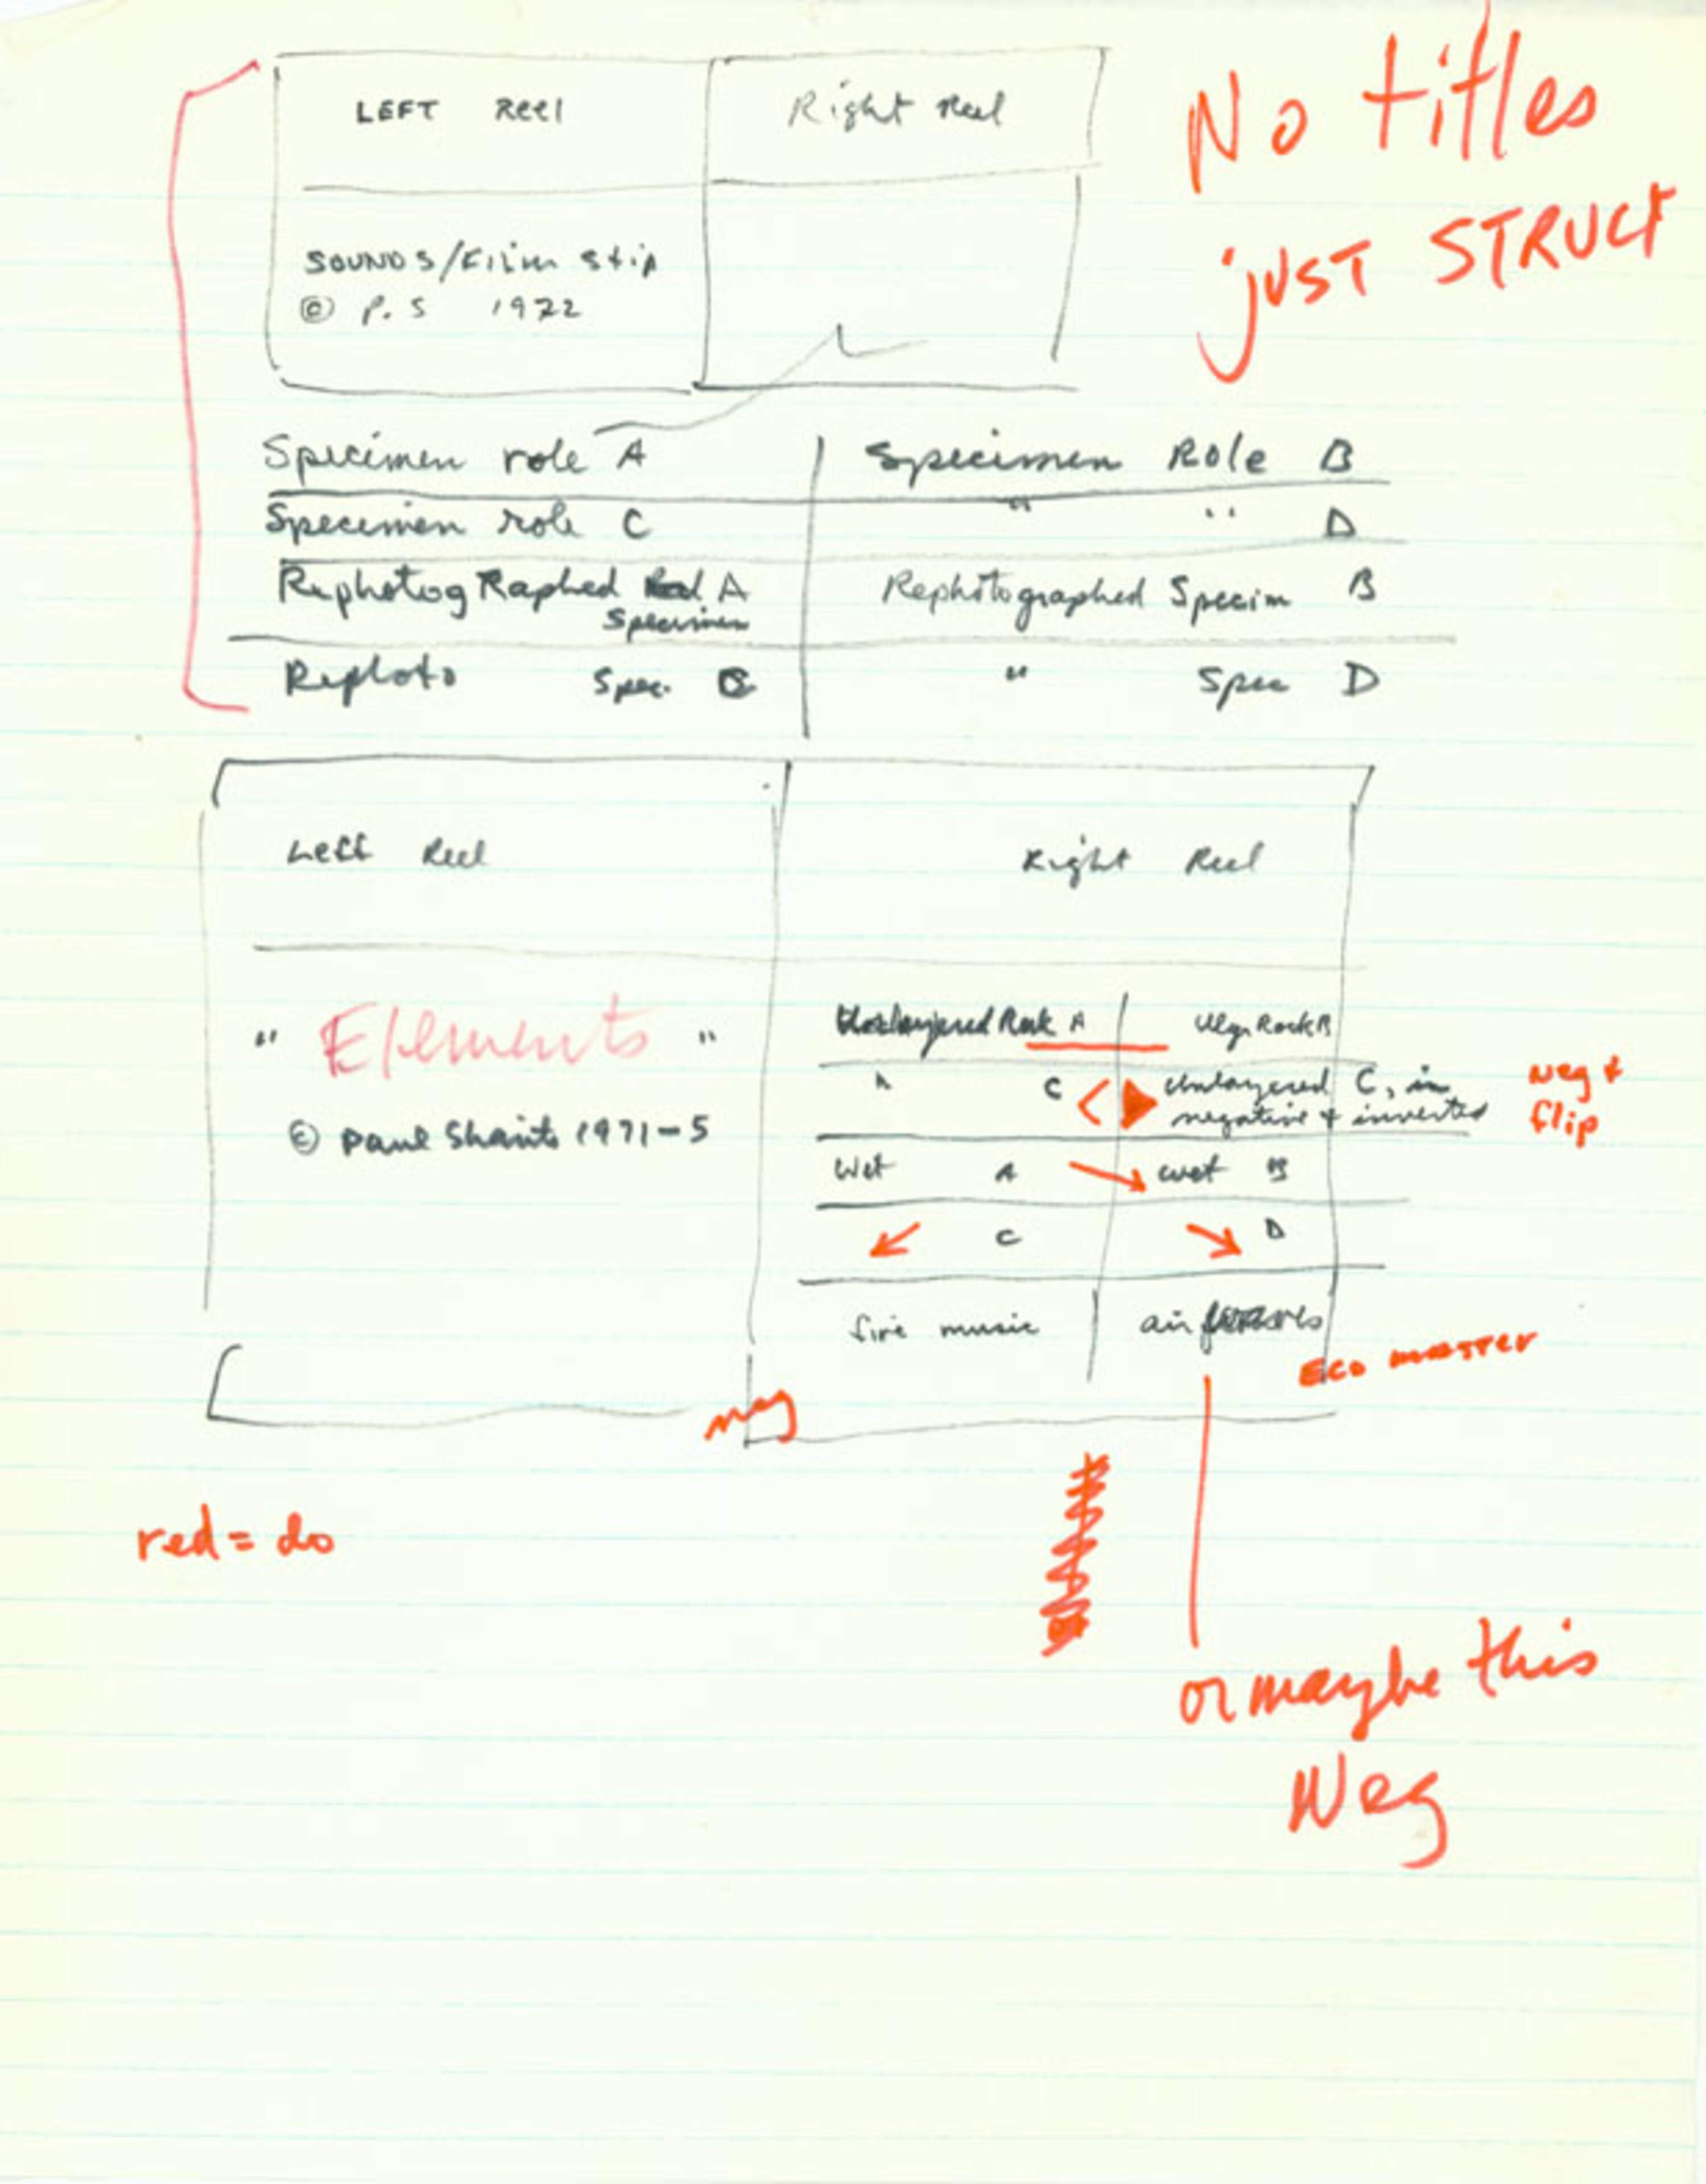 LEFT Reel
Right Reel
No titles
just STRUCT
SOUNDS/Film Stip
© P. S 1972
Specimen role A
Specimen Role B
Specimen role C
" " D
Rephotog Raphed A
Specimen
Rephotographed Specim B
Rephoto Spec. C
" Spec D
Left Reel
Right Reel
" Elements "
© Paul Sharits 1971-5
Rock A
Rock B
" C
Unlayered C, in
negative & inverted
Neg &
flip
Wet A
wet B
C
D
fire music
air
Eco
neg
red = do
or maybe this
Neg